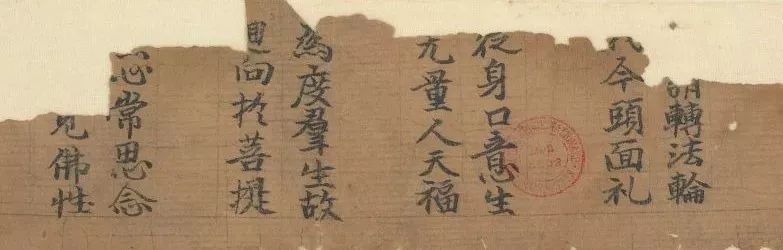 轉法輪
今頭面礼
從身口意生
无量人天福
為度羣生故
向扵菩提
常思念
見佛性